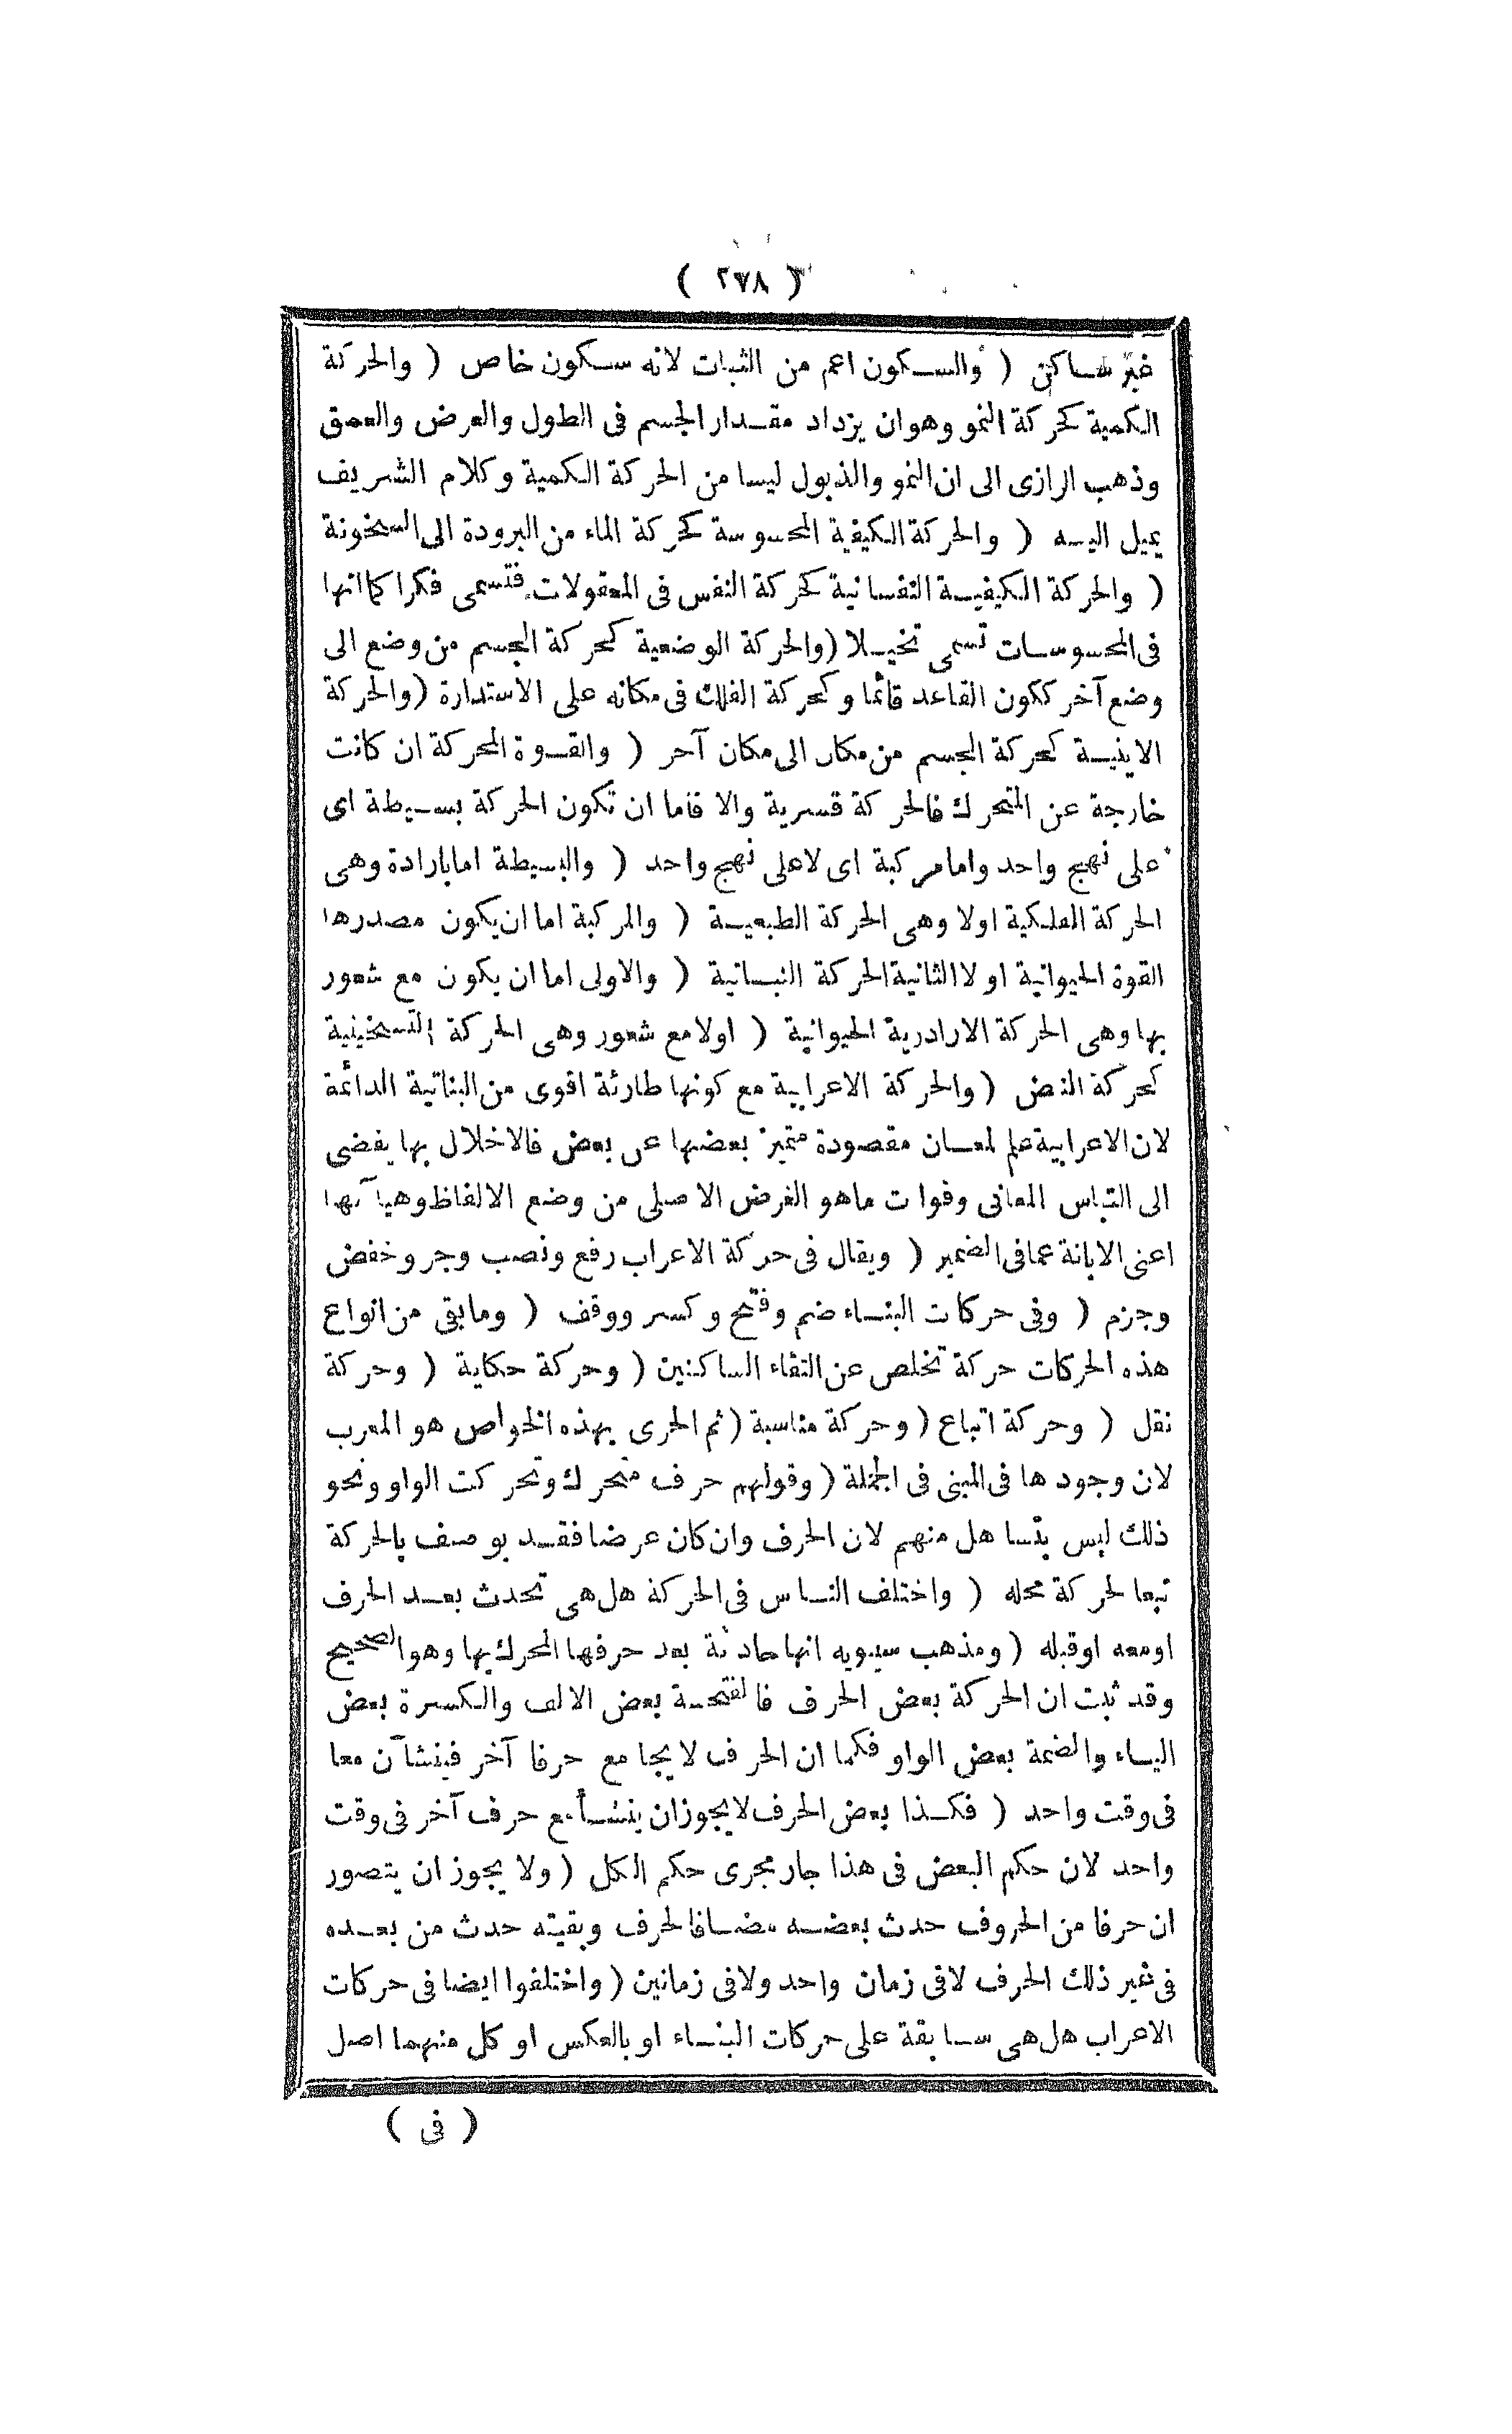 ( ٢٧٨ )
غير ساكن ( والسكون اعم من الثبات لانه سكون خاص ( والحركة
الكمية كحركة النمو وهو ان يزداد مقدار الجسم فى الطول والعرض والعمق
وذهب الرازى الى ان النمو والذبول ليسا من الحركة الكمية وكلام الشريف
يميل اليه ( والحركة الكيفية المحسوسة كحركة الماء من البرودة الى السخونة
( والحركة الكيفية النفسانية كحركة النفس فى المعقولات فتسمى فكرا كما انها
فى المحسوسات تسمى تخيلا ( والحركة الوضعية كحركة الجسم من وضع الى
وضع آخر ككون القاعد قائما وكحركة الفلك فى مكانه على الاستدارة ( والحركة
الاينية كحركة الجسم من مكان الى مكان آخر ( والقوة المحركة ان كانت
خارجة عن المتحرك فالحركة قسرية والا فاما ان تكون الحركة بسيطة اى
على نهج واحد واما مركبة اى لا على نهج واحد ( والبسيطة اما بارادة وهى
الحركة الفلكية اولا وهى الحركة الطبعية ( والمركبة اما ان يكون مصدرها
القوة الحيوانية او لا الثانية الحركة النباتية ( والاولى اما ان يكون مع شعور
بها وهى الحركة الارادرية الحيوانية ( اولا مع شعور وهى الحركة التسخينية
كحركة النبض ( والحركة الاعرابية مع كونها طارئة اقوى من البنائية الدائمة
لان الاعرابية علم لمعان مقصودة متميز بعضها عن بعض فالاخلال بها يفضى
الى التباس المعانى وفوات ماهو الغرض الاصلى من وضع الالفاظ وهيآتها
اعنى الابانة عما فى الضمير ( ويقال فى حركة الاعراب رفع ونصب وجر وخفض
وجزم ( وفى حركات البناء ضم وفتح وكسر ووقف ( ومابقى من انواع
هذه الحركات حركة تخلص عن التقاء الساكنين ( وحركة حكاية ( وحركة
نقل ( وحركة اتباع ( وحركة مناسبة ( ثم الحرى بهذه الخواص هو المعرب
لان وجودها فى المبنى فى الجملة ( وقولهم حرف متحرك وتحركت الواو ونحو
ذلك ليس بتساهل منهم لان الحرف وان كان عرضا فقد يوصف بالحركة
تبعا لحركة محله ( واختلف الناس فى الحركة هل هى تحدث بعد الحرف
اومعه اوقبله ( ومذهب سيبويه انها حادثة بعد حرفها المحرك بها وهو الصحيح
وقد ثبت ان الحركة بعض الحرف فالفتحة بعض الالف والكسرة بعض
الياء والضمة بعض الواو فكما ان الحرف لا يجامع حرفا آخر فينشآن معا
فى وقت واحد ( فكذا بعض الحرف لايجوز ان ينشأ مع حرف آخر فى وقت
واحد لان حكم البعض فى هذا جار مجرى حكم الكل ( ولا يجوز ان يتصور
ان حرفا من الحروف حدث بعضه مضافا لحرف وبقيته حدث من بعده
فى غير ذلك الحرف لافى زمان واحد ولافى زمانين ( واختلفوا ايضا فى حركات
الاعراب هل هى سابقة على حركات البناء او بالعكس او كل منهما اصل
( فى )